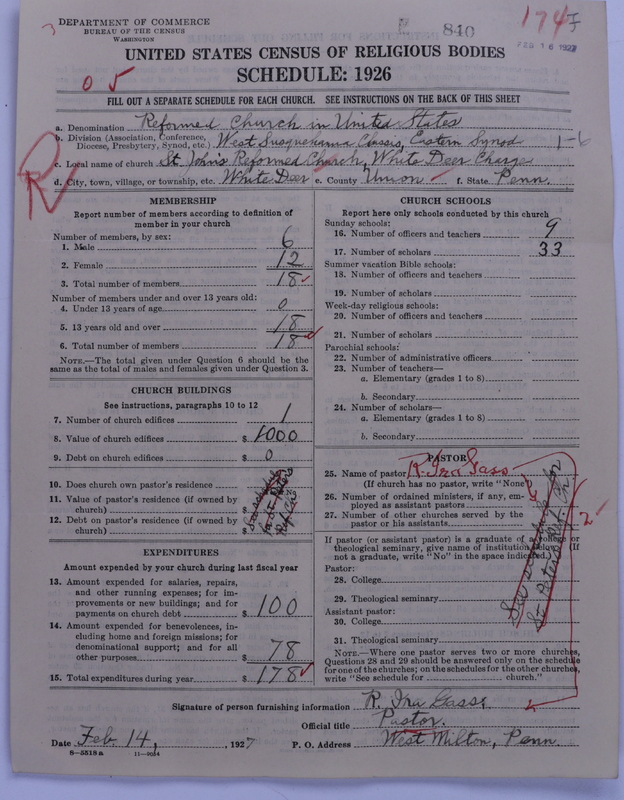 DEPARTMENT OF COMMERCE
BUREAU OF THE CENSUS
WASHINGTON
840
174
FEB 16 1927
UNITED STATES CENSUS OF RELIGIOUS BODIES
SCHEDULE: 1926
0 5
FILL OUT A SEPARATE SCHEDULE FOR EACH CHURCH. SEE INSTRUCTIONS ON THE BACK OF THIS SHEET
a. Denomination Reformed Church in United States
b. Division (Association, Conference, Diocese, Presbytery, Synod, etc.) West Susquehanna Classis, Eastern Synod 1-6
c. Local name of church St. John's Reformed Church, White Deer Charge
d. City, town, village, or township, etc. White Deer e. County Union f. State Penn.
R
MEMBERSHIP
Report number of members according to definition of member in your church
Number of members, by sex:
1. Male 6
2. Female 12
3. Total number of members 18
Number of members under and over 13 years old:
4. Under 13 years of age 0
5. 13 years old and over 18
6. Total number of members 18
NOTE.—The total given under Question 6 should be the same as the total of males and females given under Question 3.
CHURCH BUILDINGS
See instructions, paragraphs 10 to 12
7. Number of church edifices 1
8. Value of church edifices $ 1000
9. Debt on church edifices $ 0
10. Does church own pastor's residence
11. Value of pastor's residence (if owned by church) $
12. Debt on pastor's residence (if owned by church) $
EXPENDITURES
Amount expended by your church during last fiscal year
13. Amount expended for salaries, repairs, and other running expenses; for improvements or new buildings; and for payments on church debt $ 100
14. Amount expended for benevolences, including home and foreign missions; for denominational support; and for all other purposes $ 78
15. Total expenditures during year $ 178
CHURCH SCHOOLS
Report here only schools conducted by this church
Sunday schools:
16. Number of officers and teachers 9
17. Number of scholars 33
Summer vacation Bible schools:
18. Number of officers and teachers
19. Number of scholars
Week-day religious schools:
20. Number of officers and teachers
21. Number of scholars
Parochial schools:
22. Number of administrative officers
23. Number of teachers—
a. Elementary (grades 1 to 8)
b. Secondary
24. Number of scholars—
a. Elementary (grades 1 to 8)
b. Secondary
PASTOR
25. Name of pastor R. Ira Gass
(If church has no pastor, write "None
26. Number of ordained ministers, if any, employed as assistant pastors
27. Number of other churches served by the pastor or his assistants 2
If pastor (or assistant pastor) is a graduate of a college or theological seminary, give name of institution below. (If not a graduate, write "No" in the space indicated.)
Pastor:
28. College
29. Theological seminary
Assistant pastor:
30. College
31. Theological seminary
NOTE.—Where one pastor serves two or more churches, Questions 28 and 29 should be answered only on the schedule for one of the churches; on the schedules for the other churches, write "See schedule for church."
See schedule for
St. Peters Ref. Ch.
Signature of person furnishing information R. Ira Gass
Official title Pastor.
Date Feb. 14, , 1927 P. O. Address West Milton, Penn.
8—5518a 11—9054